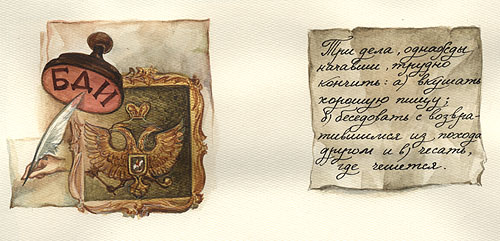 БДИ
Три дела, однажды
начавши, трудно
кончить: а) вкушать
хорошую пищу;
б) беседовать с возвра-
тившимся из похода
другом и в) чесать,
где чешется.